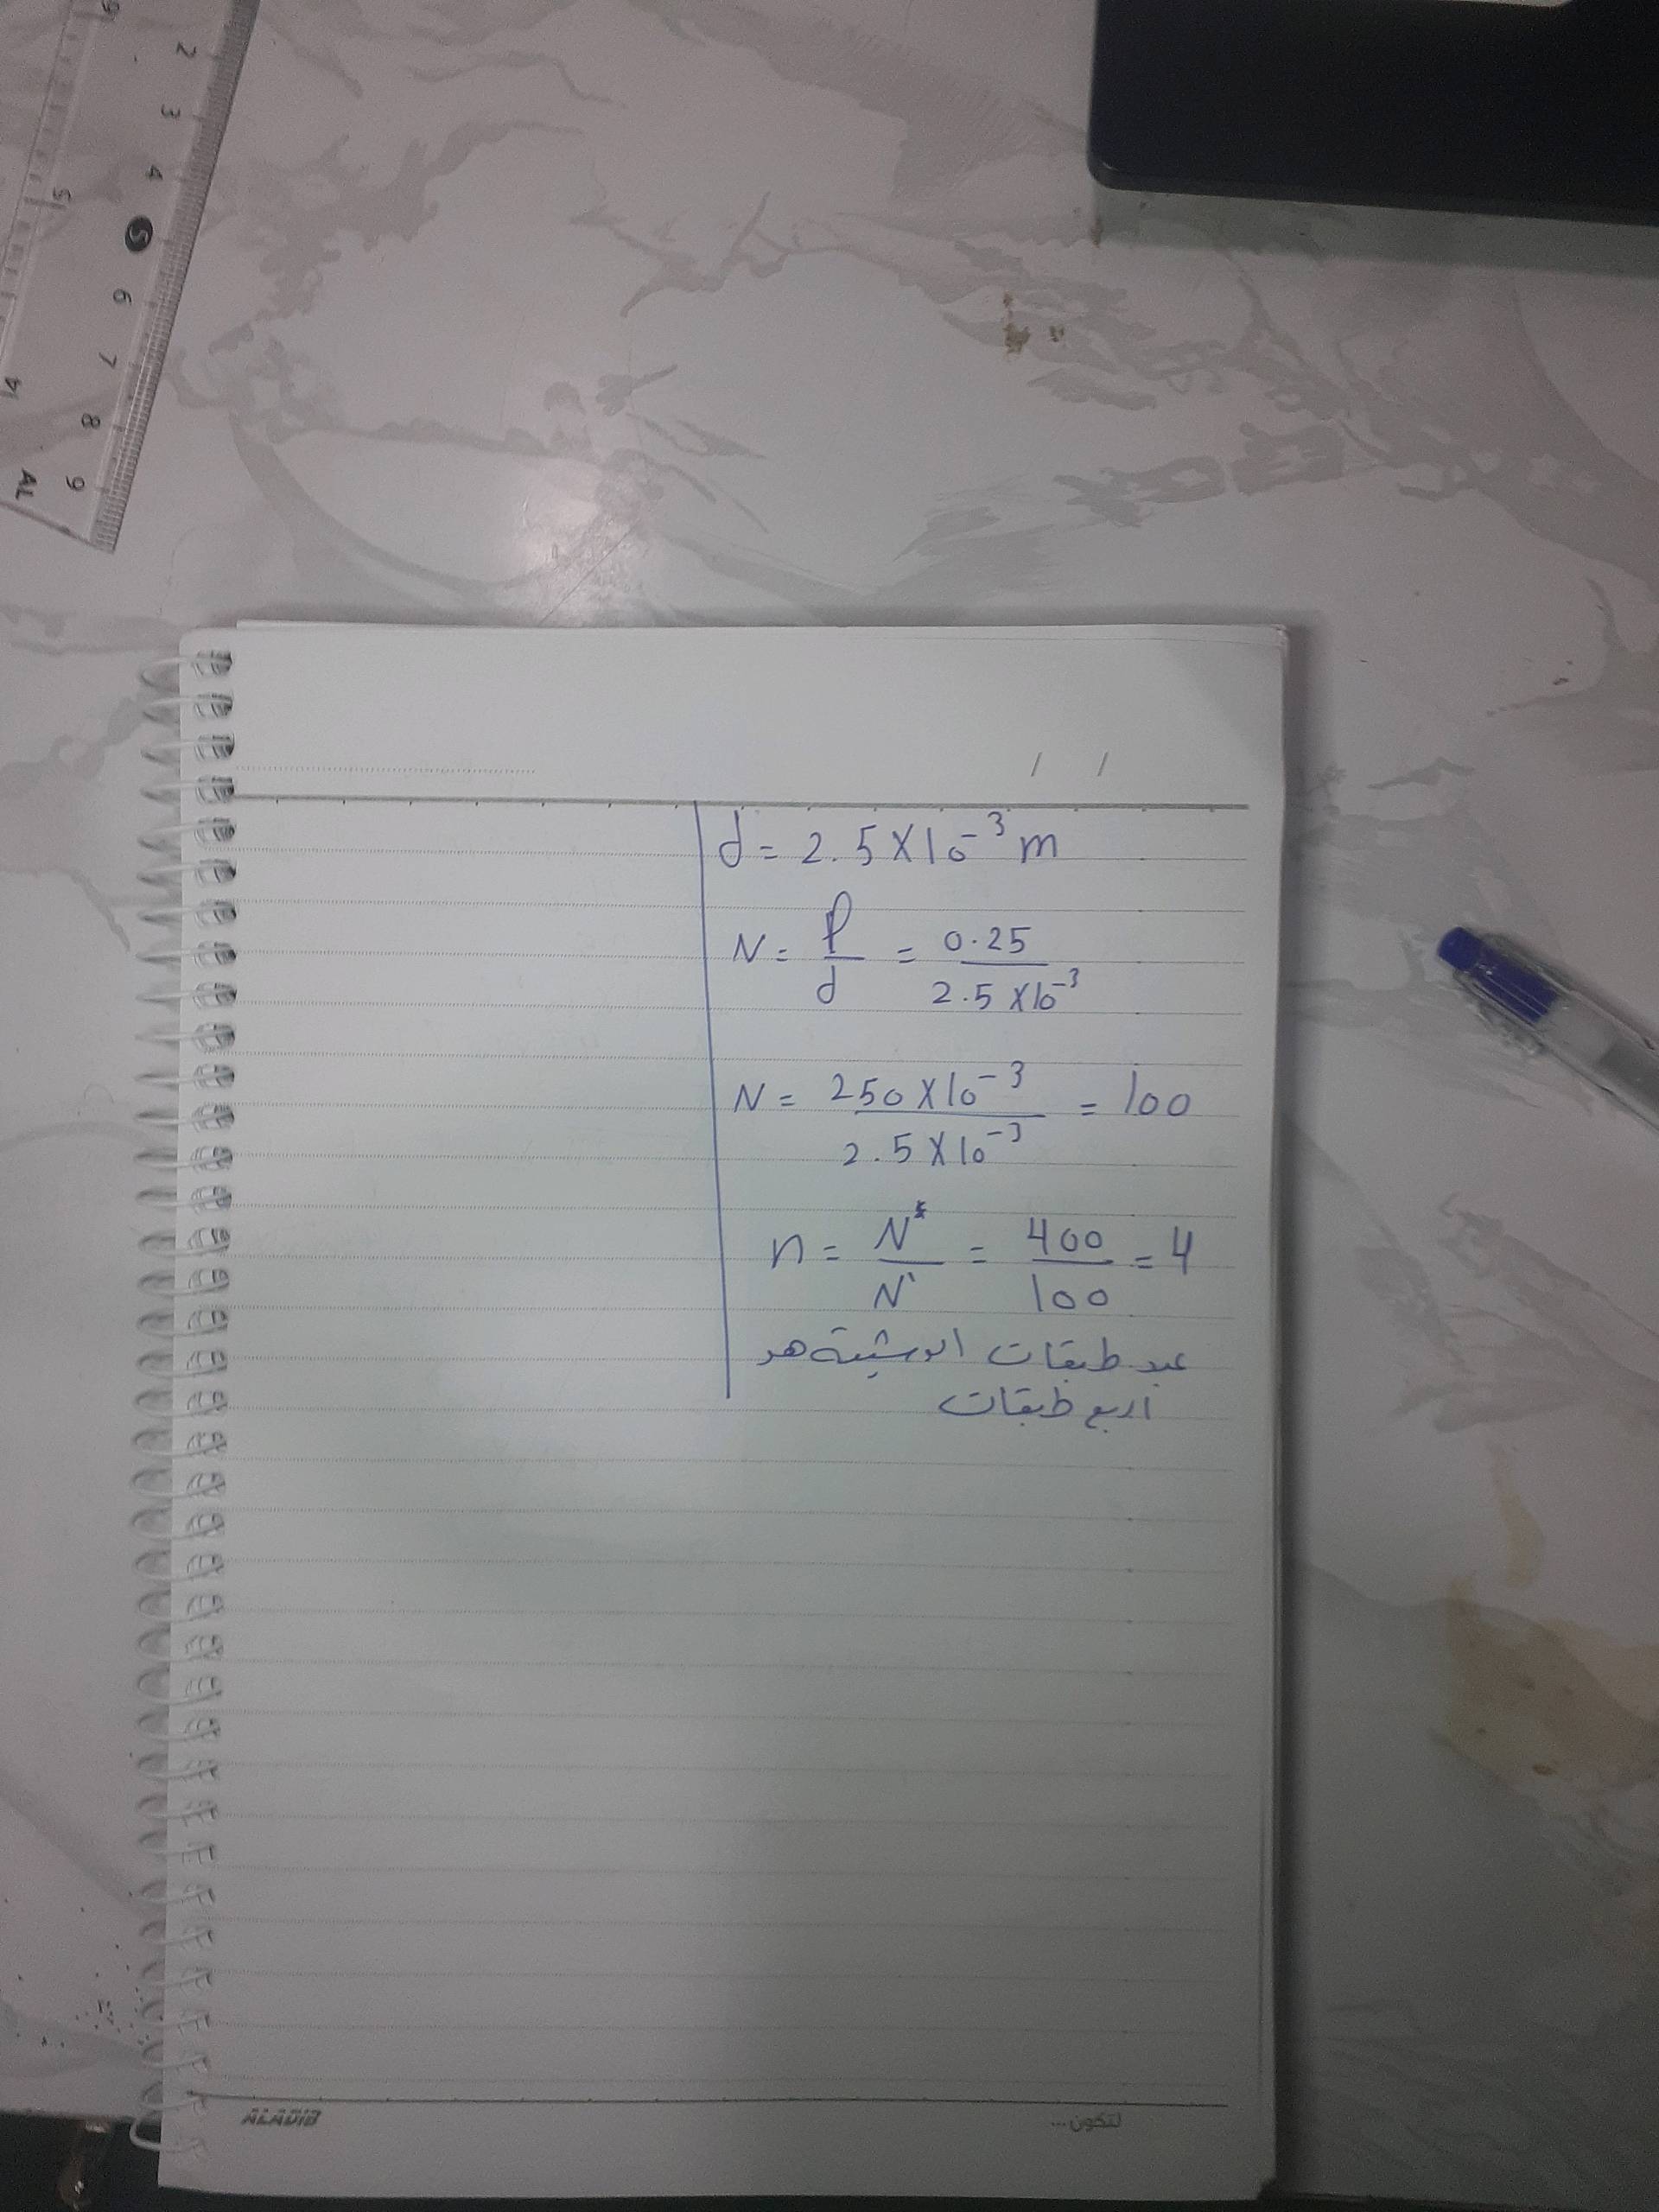 2
3
4
5
6
7
8
9
AL
/ /
d = 2.5 X 10⁻³ m
N = ℓ/d = 0.25/2.5 X 10⁻³
N = 250 X 10⁻³/2.5 X 10⁻³ = 100
n = N/N` = 400/100 = 4
عدد طبقات الوشيعة هو
اربع طبقات
ALADIB
لتكون...